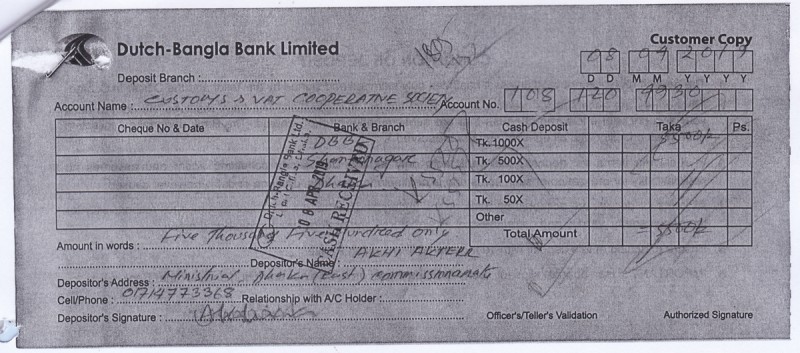 Dutch-Bangla Bank Limited
Customer Copy
08 04 2019
D D M M Y Y Y Y
Deposit Branch :
Account Name : CUSTOMS & VAT COOPERATIVE SOCIETY Account No. 108 120 9930
Cheque No & Date Bank & Branch Cash Deposit Taka Ps.
DBB Tk. 1000X 5500/-
Tk. 500X
Tk. 100X
Tk. 50X
Other
Total Amount = 5500/-
Dutch-Bangla Bank Ltd.
08 APR 2019
CASH RECEIVED
Amount in words : Five Thousand Five Hundred only
Depositor's Name : AKHI AKTER
Depositor's Address : Dhaka (East)
Cell/Phone : 01714773368 Relationship with A/C Holder :
Depositor's Signature :
Officer's/Teller's Validation Authorized Signature